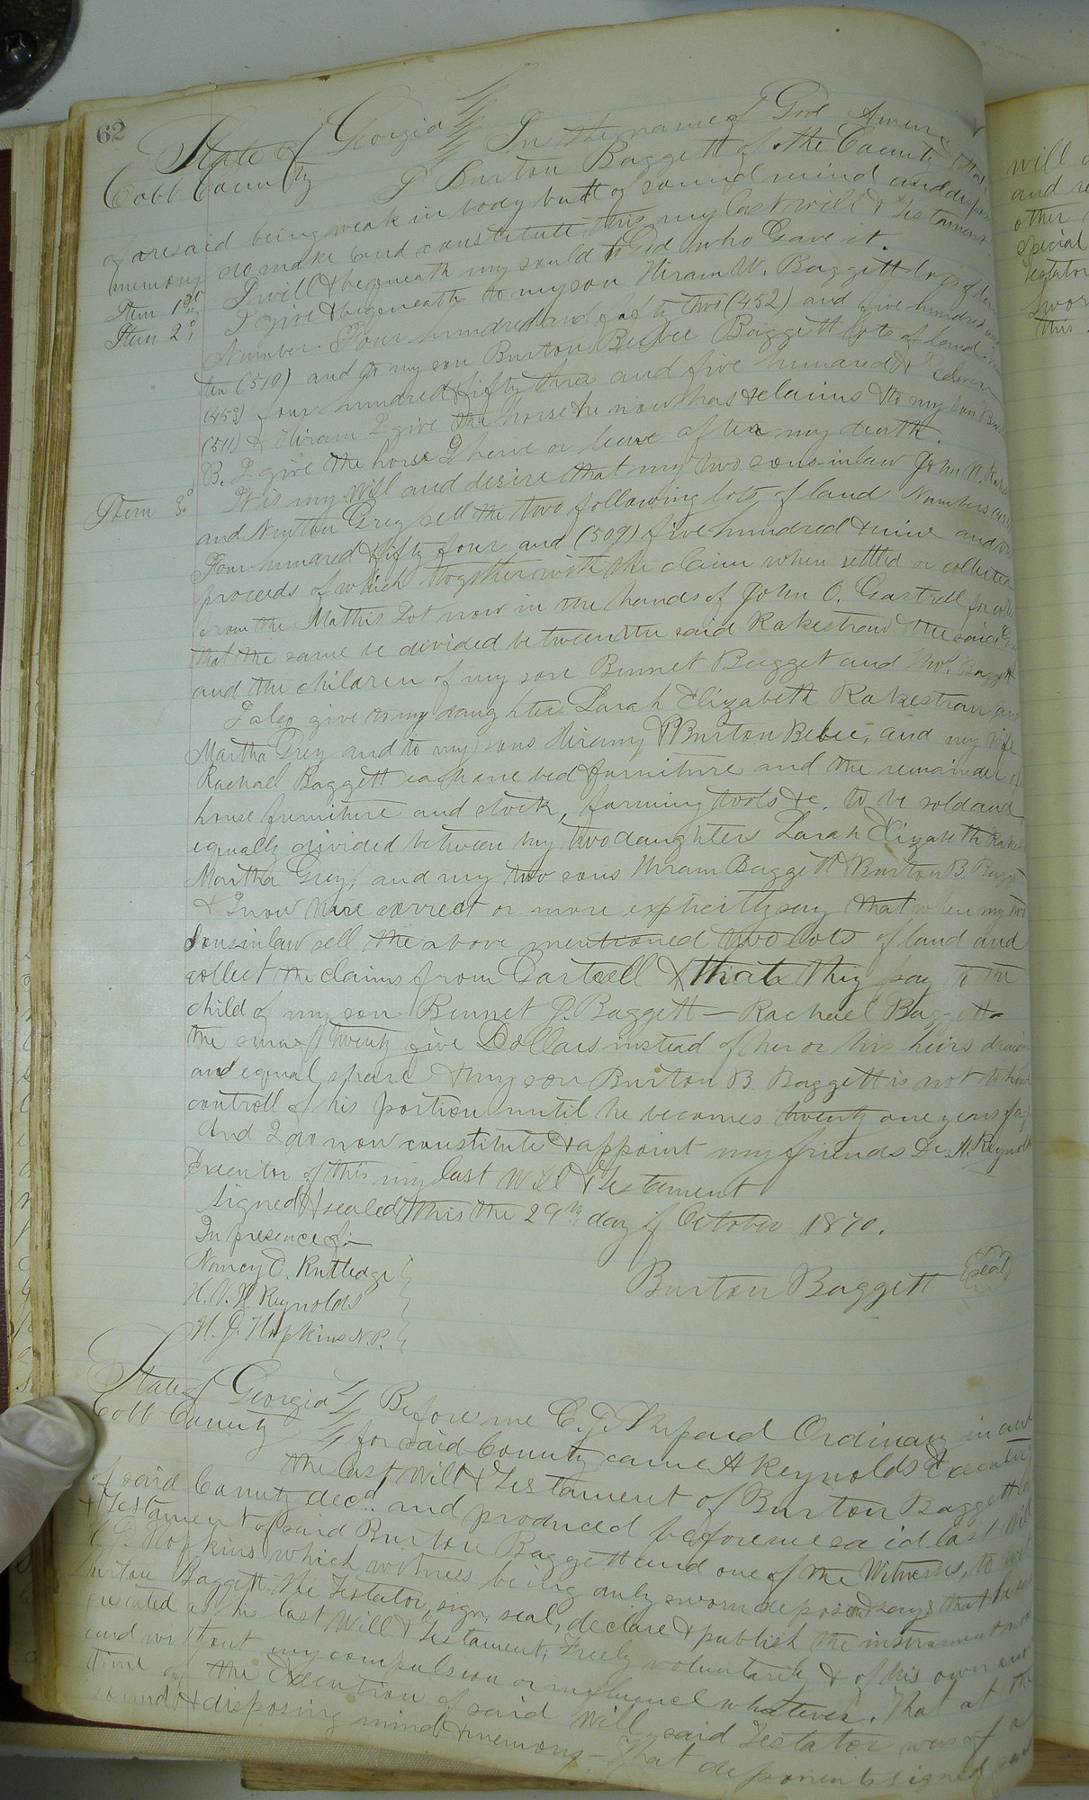 62
State of Georgia } In the name of God Amen
Cobb County } I Burton Baggett of the County
aforesaid being weak in body but of sound mind and
memory do make and constitute this my last will & Testament
Item 1st I will & bequeath my sould to God who Gave it.
Item 2d I give & bequeath to my son Hiram W. Baggett lots of
Number Four hundred and fifty two (452) and five hundred and
ten (510) and to my son Burton Bebee Baggett lots of land
(453) four hundred & fifty three and five hundred &
(511) & Hiram I give the horse he now has & claims & to my son
B. I give the horse I have or leave after my death.
Item 3d It is my Will and desire that my two sons-in law John W.
and Newton Grey sell the two following lots of land Numbers
Four hundred & fifty four and (509) five hundred & nine and
proceeds of which together with the claim when settled or collected
from the Mathis Lot now in the hands of John O. Gartrell
that the same be divided between the said Rakestraw & the said
and the children of my son Bennet Bagget and Thos. Baggett
I also give to my daughters Sarah Elizabeth Rakestraw and
Martha Grey and to my sons Hiram, & Burton Bebee, and my wife
Rachael Baggett each one bed & furniture and the remainder of
house furniture and stock, farming tools &c. to be sold and
equally divided between my two daughters Sarah Elizabeth
Martha Grey, and my two sons Hiram Baggett & Burton B.
& I now here correct or more explicitly say that when my two
sons in law sell the above mentioned two lots of land and
collect the claims from Gartrell & that they pay to the
child of my son Bennet J. Baggett — Rachael Baggett
the sum of twenty five Dollars instead of her or his heirs
and equal share & my son Burton B. Baggett is not to have
controll of his portion until he becomes twenty one years of
And I do now constitute & appoint my friends Dr. H. Reynolds
Executor of this my last Will & Testament
Signed & sealed this the 29th day of October 1870.
In presence of:—
Nancy O. Rutledge
H. V. M. Reynolds
H. J. Hopkins N.P.
Burton Baggett Seal
State of Georgia } Before me C. J. Shepard Ordinary in and
Cobb County } for said County came H Reynolds Executor
the last Will & Testament of Burton Baggett
of said County decd. and produced before me said last Will
& Testament of said Burton Baggett and one of the Witnesses, to
H. J. Hopkins which witness being duly sworn deposed & says that he
Burton Baggett the Testator, sign, seal, declare & publish the instrument
executed as his last Will & Testament, freely voluntarily & of his own
and without any compulsion or influence whatever. That at the
time of the Execution of said Will, said Testator was of
sound & disposing mind & memory — That deponent signed
will
and
other
special
Testator
this